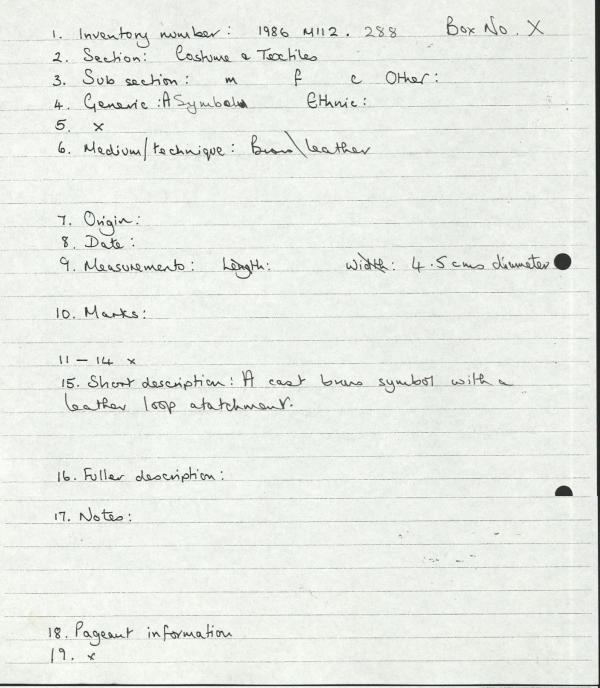 1. Inventory number: 1986 M112. 288 Box No. X
2. Section: Costume & Textiles
3. Sub section: m f c Other:
4. Generic: A Symbol Ethnic:
5. x
6. Medium/technique: Brass\leather
7. Origin:
8. Date:
9. Measurements: Length: Width: 4.5 cms diameter
10. Marks:
11 – 14 x
15. Short description: A cast brass symbol with a
leather loop atatchment.
16. Fuller description:
17. Notes:
18. Pageant information
19. x